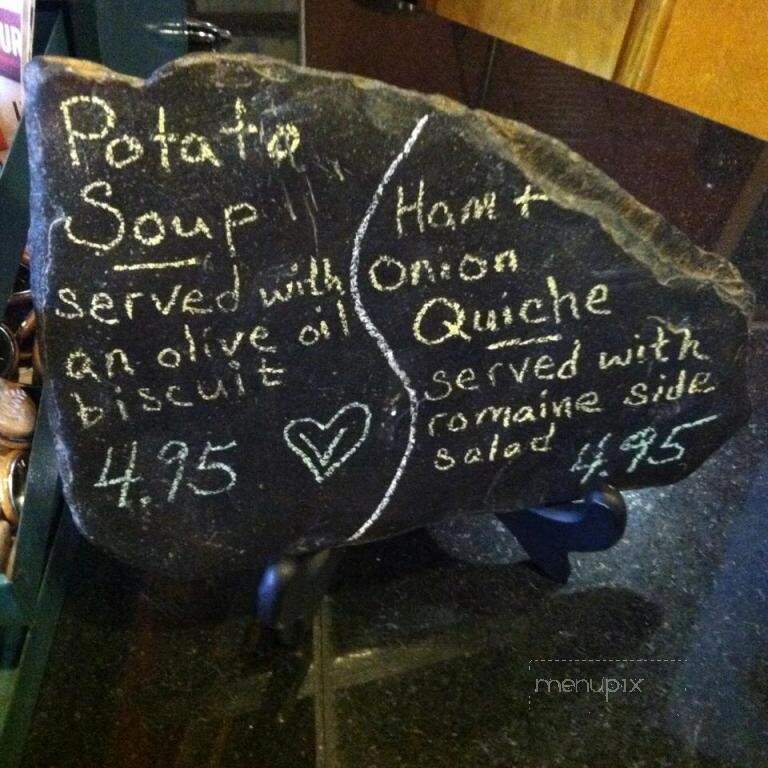 Potato
Soup
served with
an olive oil
biscuit
4.95
Ham +
Onion
Quiche
served with
romaine side
salad
4.95
menupix